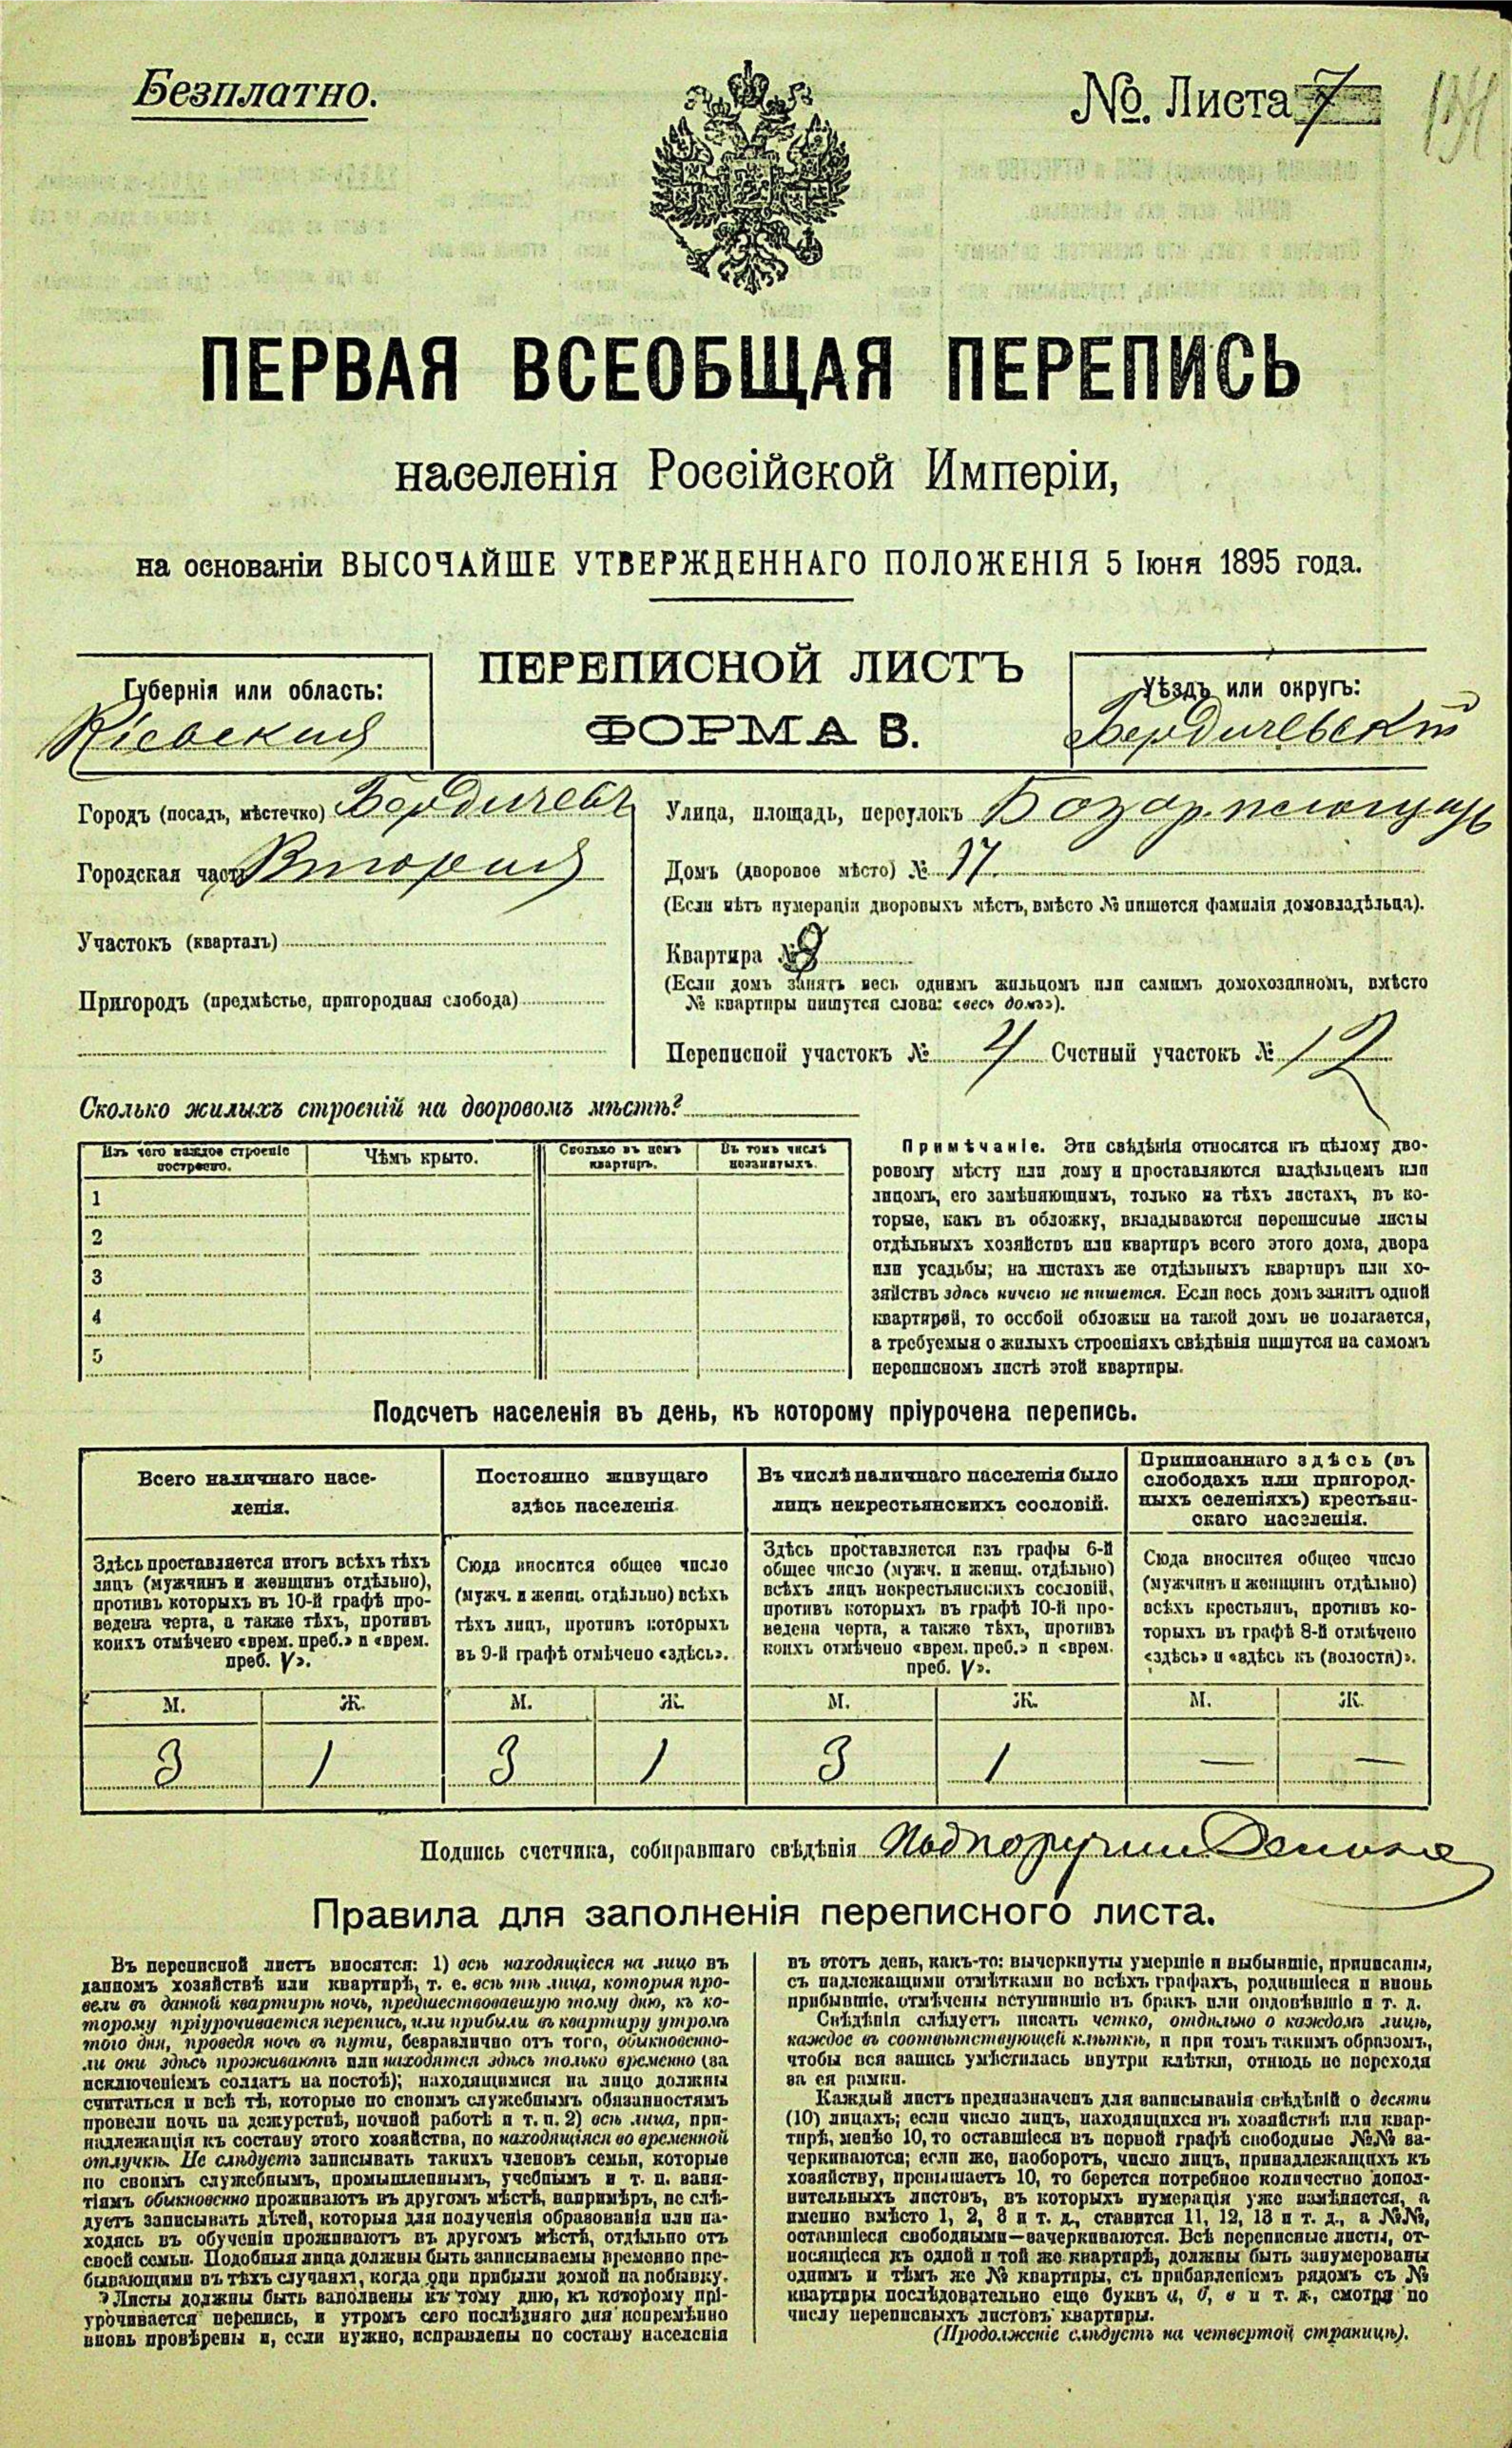 Безплатно.
№. Листа 7
ПЕРВАЯ ВСЕОБЩАЯ ПЕРЕПИСЬ
населенія Россійской Имперіи,
на основаніи ВЫСОЧАЙШЕ УТВЕРЖДЕННАГО ПОЛОЖЕНІЯ 5 Іюня 1895 года.
ПЕРЕПИСНОЙ ЛИСТЪ
ФОРМА В.
Губернія или область:
Кіевская
Уѣздъ или округъ:
Бердичевскій
Городъ (посадъ, мѣстечко) Бердичевъ
Городская часть Вторая
Участокъ (кварталъ)
Пригородъ (предмѣстье, пригородная слобода)
Улица, площадь, переулокъ Базар. площадь
Домъ (дворовое мѣсто) № 17.
(Если нѣтъ нумераціи дворовыхъ мѣстъ, вмѣсто № пишется фамилія домовладѣльца).
Квартира №
(Если домъ занятъ весь однимъ жильцомъ или самимъ домохозяиномъ, вмѣсто
№ квартиры пишутся слова: «весь домъ»).
Переписной участокъ № 4 Счетный участокъ № 12
Сколько жилыхъ строеній на дворовомъ мѣстѣ?
Изъ чего каждое строеніе
построено.
Чѣмъ крыто.
Сколько въ немъ
квартиръ.
Въ томъ числѣ
незанятыхъ.
1
2
3
4
5
Примѣчаніе. Эти свѣдѣнія относятся къ цѣлому дво-
ровому мѣсту или дому и проставляются владѣльцемъ или
лицомъ, его замѣняющимъ, только на тѣхъ листахъ, въ ко-
торые, какъ въ обложку, вкладываются переписные листы
отдѣльныхъ хозяйствъ или квартиръ всего этого дома, двора
или усадьбы; на листахъ же отдѣльныхъ квартиръ или хо-
зяйствъ здѣсь ничего не пишется. Если весь домъ занятъ одной
квартирой, то особой обложки на такой домъ не полагается,
а требуемыя о жилыхъ строеніяхъ свѣдѣнія пишутся на самомъ
переписномъ листѣ этой квартиры.
Подсчетъ населенія въ день, къ которому пріурочена перепись.
Всего наличнаго насе-
ленія.
Постоянно живущаго
здѣсь населенія.
Въ числѣ наличнаго населенія было
лицъ некрестьянскихъ сословій.
Приписаннаго здѣсь (въ
слободахъ или пригород-
ныхъ селеніяхъ) крестьян-
скаго населенія.
Здѣсь проставляется итогъ всѣхъ тѣхъ
лицъ (мужчинъ и женщинъ отдѣльно),
противъ которыхъ въ 10-й графѣ про-
ведена черта, а также тѣхъ, противъ
коихъ отмѣчено «врем. преб.» и «врем.
преб. V».
Сюда вносится общее число
(мужч. и женщ. отдѣльно) всѣхъ
тѣхъ лицъ, противъ которыхъ
въ 9-й графѣ отмѣчено «здѣсь».
Здѣсь проставляется изъ графы 6-й
общее число (мужч. и женщ. отдѣльно)
всѣхъ лицъ некрестьянскихъ сословій,
противъ которыхъ въ графѣ 10-й про-
ведена черта, а также тѣхъ, противъ
коихъ отмѣчено «врем. преб.» и «врем.
преб. V».
Сюда вносится общее число
(мужчинъ и женщинъ отдѣльно)
всѣхъ крестьянъ, противъ ко-
торыхъ въ графѣ 8-й отмѣчено
«здѣсь» и «здѣсь къ (волости)».
М. Ж. М. Ж. М. Ж. М. Ж.
3 1 3 1 3 1 — —
Подпись счетчика, собиравшаго свѣдѣнія
Правила для заполненія переписного листа.
Въ переписной листъ вносятся: 1) всѣ находящіеся на лицо въ
данномъ хозяйствѣ или квартирѣ, т. е. всѣ тѣ лица, которыя про-
вели въ данной квартирѣ ночь, предшествовавшую тому дню, къ ко-
торому пріурочивается перепись, или прибыли въ квартиру утромъ
того дня, проведя ночь въ пути, безразлично отъ того, обыкновенно-
ли они здѣсь проживаютъ или находятся здѣсь только временно (за
исключеніемъ солдатъ на постоѣ); находящимися на лицо должны
считаться и всѣ тѣ, которые по своимъ служебнымъ обязанностямъ
провели ночь на дежурствѣ, ночной работѣ и т. п. 2) всѣ лица, при-
надлежащія къ составу этого хозяйства, но находящіяся во временной
отлучкѣ. Не слѣдуетъ записывать такихъ членовъ семьи, которые
по своимъ служебнымъ, промышленнымъ, учебнымъ и т. п. заня-
тіямъ обыкновенно проживаютъ въ другомъ мѣстѣ, напримѣръ, не слѣ-
дуетъ записывать дѣтей, которыя для полученія образованія или на-
ходясь въ обученіи проживаютъ въ другомъ мѣстѣ, отдѣльно отъ
своей семьи. Подобныя лица должны быть записываемы временно пре-
бывающими въ тѣхъ случаяхъ, когда они прибыли домой на побывку.
Листы должны быть заполнены къ тому дню, къ которому прі-
урочивается перепись, и утромъ сего послѣдняго дня непремѣнно
вновь провѣрены и, если нужно, исправлены по составу населенія
въ этотъ день, какъ-то: вычеркнуты умершіе и выбывшіе, приписаны,
съ надлежащими отмѣтками во всѣхъ графахъ, родившіеся и вновь
прибывшіе, отмѣчены вступившіе въ бракъ или овдовѣвшіе и т. д.
Свѣдѣнія слѣдуетъ писать четко, отдѣльно о каждомъ лицѣ,
каждое въ соотвѣтствующей клѣткѣ, и при томъ такимъ образомъ,
чтобы вся запись умѣстилась внутри клѣтки, отнюдь не переходя
за ея рамки.
Каждый листъ предназначенъ для записыванія свѣдѣній о десяти
(10) лицахъ; если число лицъ, находящихся въ хозяйствѣ или квар-
тирѣ, менѣе 10, то оставшіеся въ первой графѣ свободные №№ за-
черкиваются; если же, наоборотъ, число лицъ, принадлежащихъ къ
хозяйству, превышаетъ 10, то берется потребное количество допол-
нительныхъ листовъ, въ которыхъ нумерація уже измѣняется, а
именно вмѣсто 1, 2, 3 и т. д., ставится 11, 12, 13 и т. д., а №№,
оставшіеся свободными—зачеркиваются. Всѣ переписные листы, от-
носящіеся къ одной и той же квартирѣ, должны быть занумерованы
однимъ и тѣмъ же № квартиры, съ прибавленіемъ рядомъ съ №
квартиры послѣдовательно еще буквъ а, б, в и т. д., смотря по
числу переписныхъ листовъ квартиры.
(Продолженіе слѣдуетъ на четвертой страницѣ).